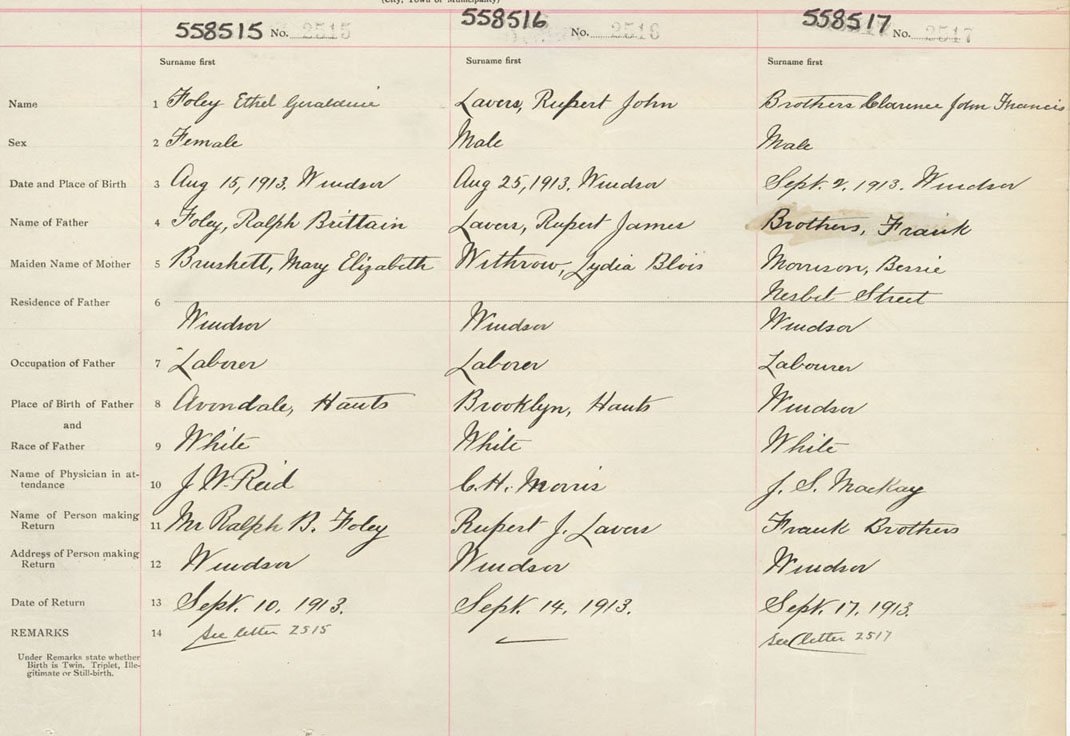 (City, Town or Municipality)
558515 No. 2515 558516 No. 2516 558517 No. 2517
Surname first Surname first Surname first
Name 1 Foley Ethel Geraldine Lavers, Rupert John Brothers Clarence John Francis
Sex 2 Female Male Male
Date and Place of Birth 3 Aug 15, 1913. Windsor Aug 25, 1913. Windsor Sept. 2, 1913. Windsor
Name of Father 4 Foley, Ralph Brittain Lavers, Rupert James Brothers, Frank
Maiden Name of Mother 5 Mary Elizabeth Withrow, Lydia Blois Morrison, Bessie
Nesbit Street
Residence of Father 6 Windsor Windsor Windsor
Occupation of Father 7 Laborer Laborer Labourer
Place of Birth of Father 8 Avondale, Hants Brooklyn, Hants Windsor
and
Race of Father 9 White White White
Name of Physician in at-
tendance 10 J. W. Reid C. H. Morris J. S. MacKay
Name of Person making
Return 11 Mr Ralph B. Foley Rupert J. Lavers Frank Brothers
Address of Person making
Return 12 Windsor Windsor Windsor
Date of Return 13 Sept. 10, 1913. Sept. 14, 1913. Sept. 17, 1913.
REMARKS 14 See letter 2515 — See letter 2517
Under Remarks state whether
Birth is Twin, Triplet, Ille-
gitimate or Still-birth.